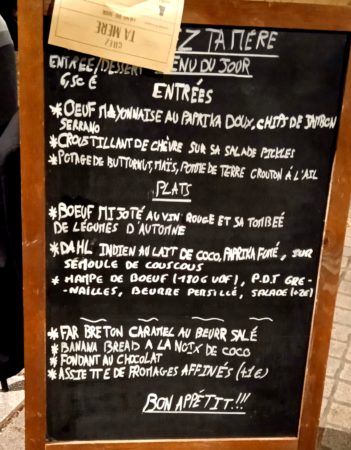 CHEZ
TA MÈRE
EZ TA MÈRE
ENTRÉE/DESSERT ENU DU JOUR
6,50 €
ENTRÉES
*OEUF MAYONNAISE AU PAPRIKA DOUX, CHIPS DE JAMBON
SERRANO
*CROUSTILLANT DE CHÈVRE SUR SA SALADE PICKLES
*POTAGE DE BUTTORNUT, MAÏS, POMME DE TERRE CROUTON À L'AIL
PLATS
*BOEUF MIJOTÉ AU VIN ROUGE ET SA TOMBÉE
DE LÉGUMES D'AUTOMNE
*DAHL INDIEN AU LAIT DE COCO, PAPRIKA FUMÉ, SUR
SEMOULE DE COUSCOUS
*HAMPE DE BOEUF (~180G VBF), P.D.T GRE-
NAILLES, BEURRE PERSILLÉ, SALADE (+2€)
*FAR BRETON CARAMEL AU BEURR SALÉ
*BANANA BREAD A LA NOIX DE COCO
*FONDANT AU CHOCOLAT
*ASSIETTE DE FROMAGES AFFINÉS (+1€)
BON APPÉTIT!!!